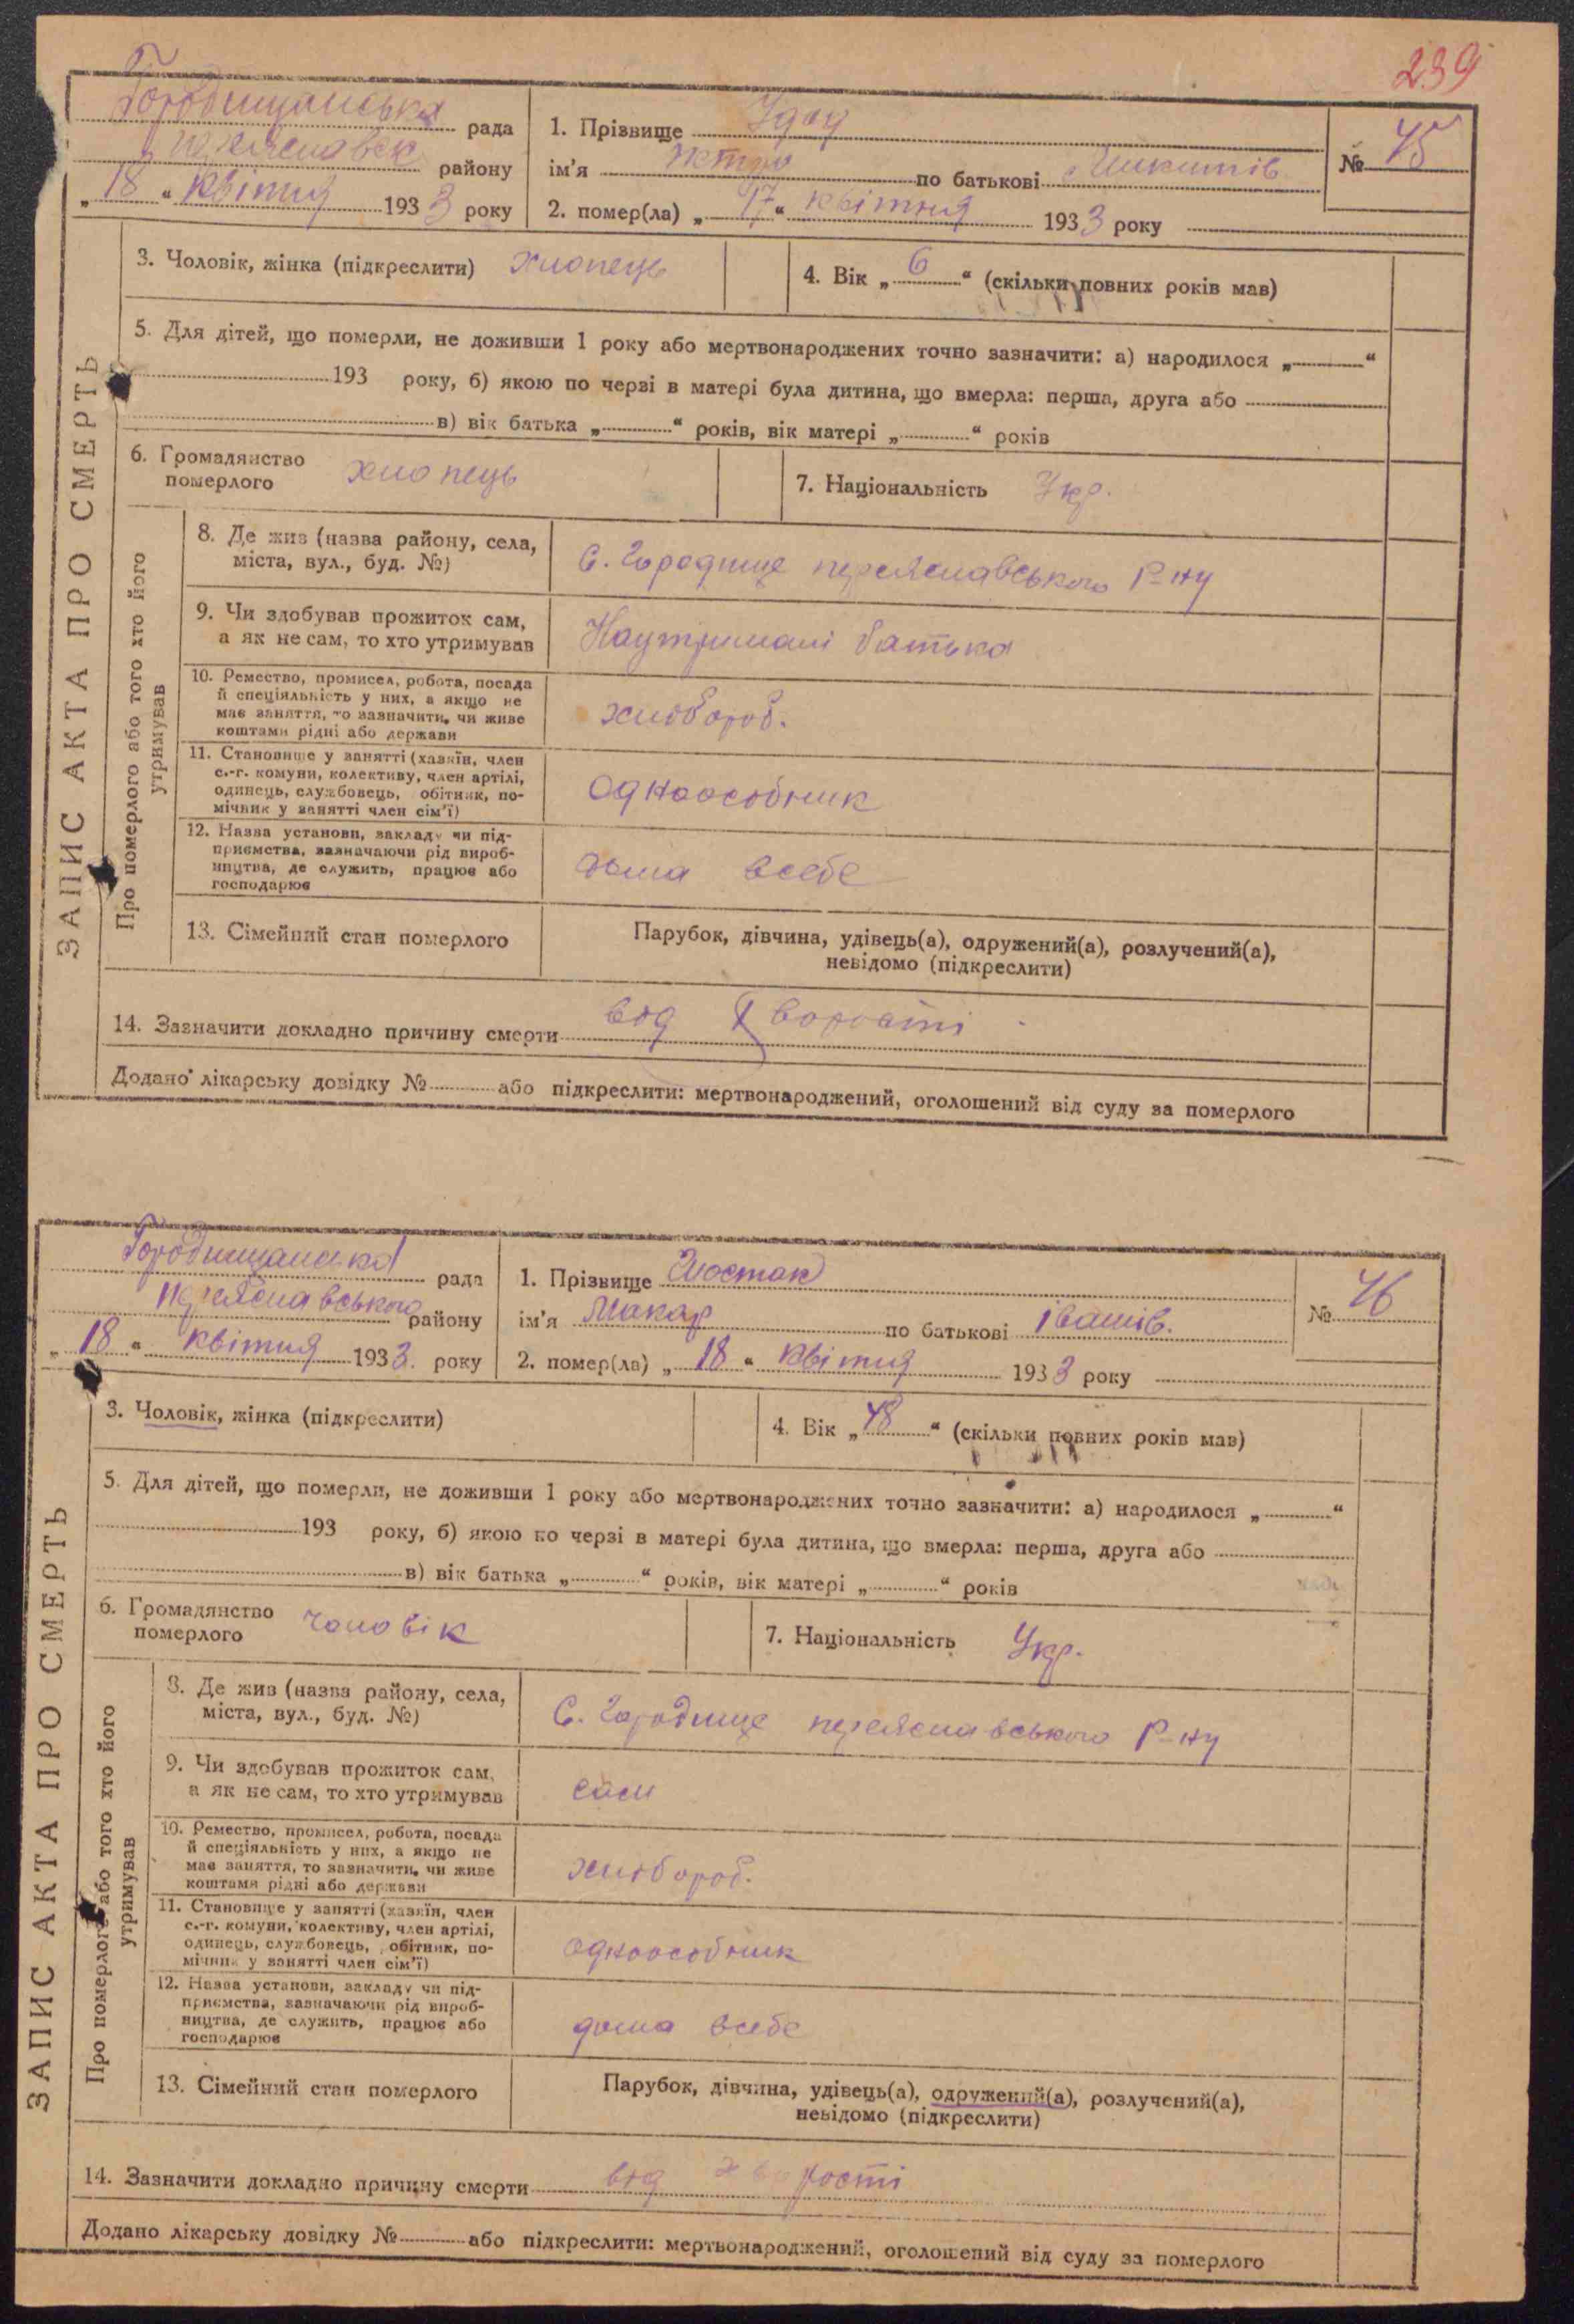 239
Городищанська рада
переяславськ району
„ 18 “ квітня 1933 року
1. Прізвище Удод
ім'я по батькові Микитів
2. помер(ла) „ 17 “ квітня 1933 року
№ 45
ЗАПИС АКТА ПРО СМЕРТЬ
3. Чоловік, жінка (підкреслити) хлопець
4. Вік „ 6 “ (скільки повних років мав)
5. Для дітей, що померли, не доживши 1 року або мертвонароджених точно зазначити: а) народилося „ “
193 року, б) якою по черзі в матері була дитина, що вмерла: перша, друга або
в) вік батька „ “ років, вік матері „ “ років
6. Громадянство
померлого хлопець
7. Національність Укр.
Про померлого або того хто його
утримував
8. Де жив (назва району, села,
міста, вул., буд. №)
С. Городище переяславського Р-ну
9. Чи здобував прожиток сам,
а як не сам, то хто утримував
Наутримані батька
10. Ремество, промисел, робота, посада
й спеціяльність у них, а якщо не
має заняття, то зазначити, чи живе
коштами рідні або держави
хлібороб.
11. Становище у занятті (хазяїн, член
с.-г. комуни, колективу, член артілі,
одинець, службовець, обітник, по-
мічник у занятті член сім'ї)
одноособник
12. Назва установи, закладу чи під-
приємства, зазначаючи рід вироб-
ництва, де служить, працює або
господарює
дома всебе
13. Сімейний стан померлого
Парубок, дівчина, удівець(а), одружений(а), розлучений(а),
невідомо (підкреслити)
14. Зазначити докладно причину смерти вод хворості
Додано лікарську довідку № або підкреслити: мертвонароджений, оголошений від суду за померлого
Городищанська рада
переяславського району
„ 18 “ квітня 1933. року
1. Прізвище Шостак
ім'я Макар по батькові іванів.
2. помер(ла) „ 18 “ квітня 1933 року
№ 46
ЗАПИС АКТА ПРО СМЕРТЬ
3. Чоловік, жінка (підкреслити)
4. Вік „ 48 “ (скільки повних років мав)
5. Для дітей, що померли, не доживши 1 року або мертвонароджених точно зазначити: а) народилося „ “
193 року, б) якою по черзі в матері була дитина, що вмерла: перша, друга або
в) вік батька „ “ років, вік матері „ “ років
6. Громадянство
померлого чоловік
7. Національність Укр.
Про померлого або того хто його
утримував
8. Де жив (назва району, села,
міста, вул., буд. №)
С. Городище переяславського Р-ну
9. Чи здобував прожиток сам,
а як не сам, то хто утримував
сам
10. Ремество, промисел, робота, посада
й спеціяльність у них, а якщо не
має заняття, то зазначити, чи живе
коштами рідні або держави
хлібороб.
11. Становище у занятті (хазяїн, член
с.-г. комуни, колективу, член артілі,
одинець, службовець, обітник, по-
мічник у занятті член сім'ї)
одноособник
12. Назва установи, закладу чи під-
приємства, зазначаючи рід вироб-
ництва, де служить, працює або
господарює
дома всебе
13. Сімейний стан померлого
Парубок, дівчина, удівець(а), одружений(а), розлучений(а),
невідомо (підкреслити)
14. Зазначити докладно причину смерти вод хворості
Додано лікарську довідку № або підкреслити: мертвонароджений, оголошений від суду за померлого